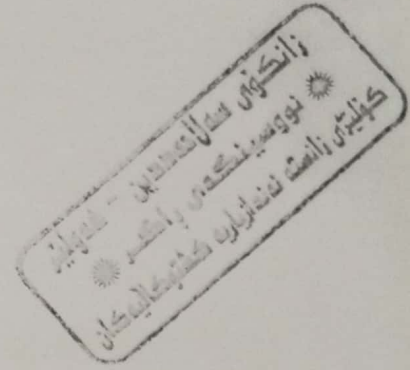 زانكۆی سەلاحەددین - هەولێر
نووسینگەی ڕاگر
كۆلێژی زانستە ئەندازیارە كشتوكاڵیەكان